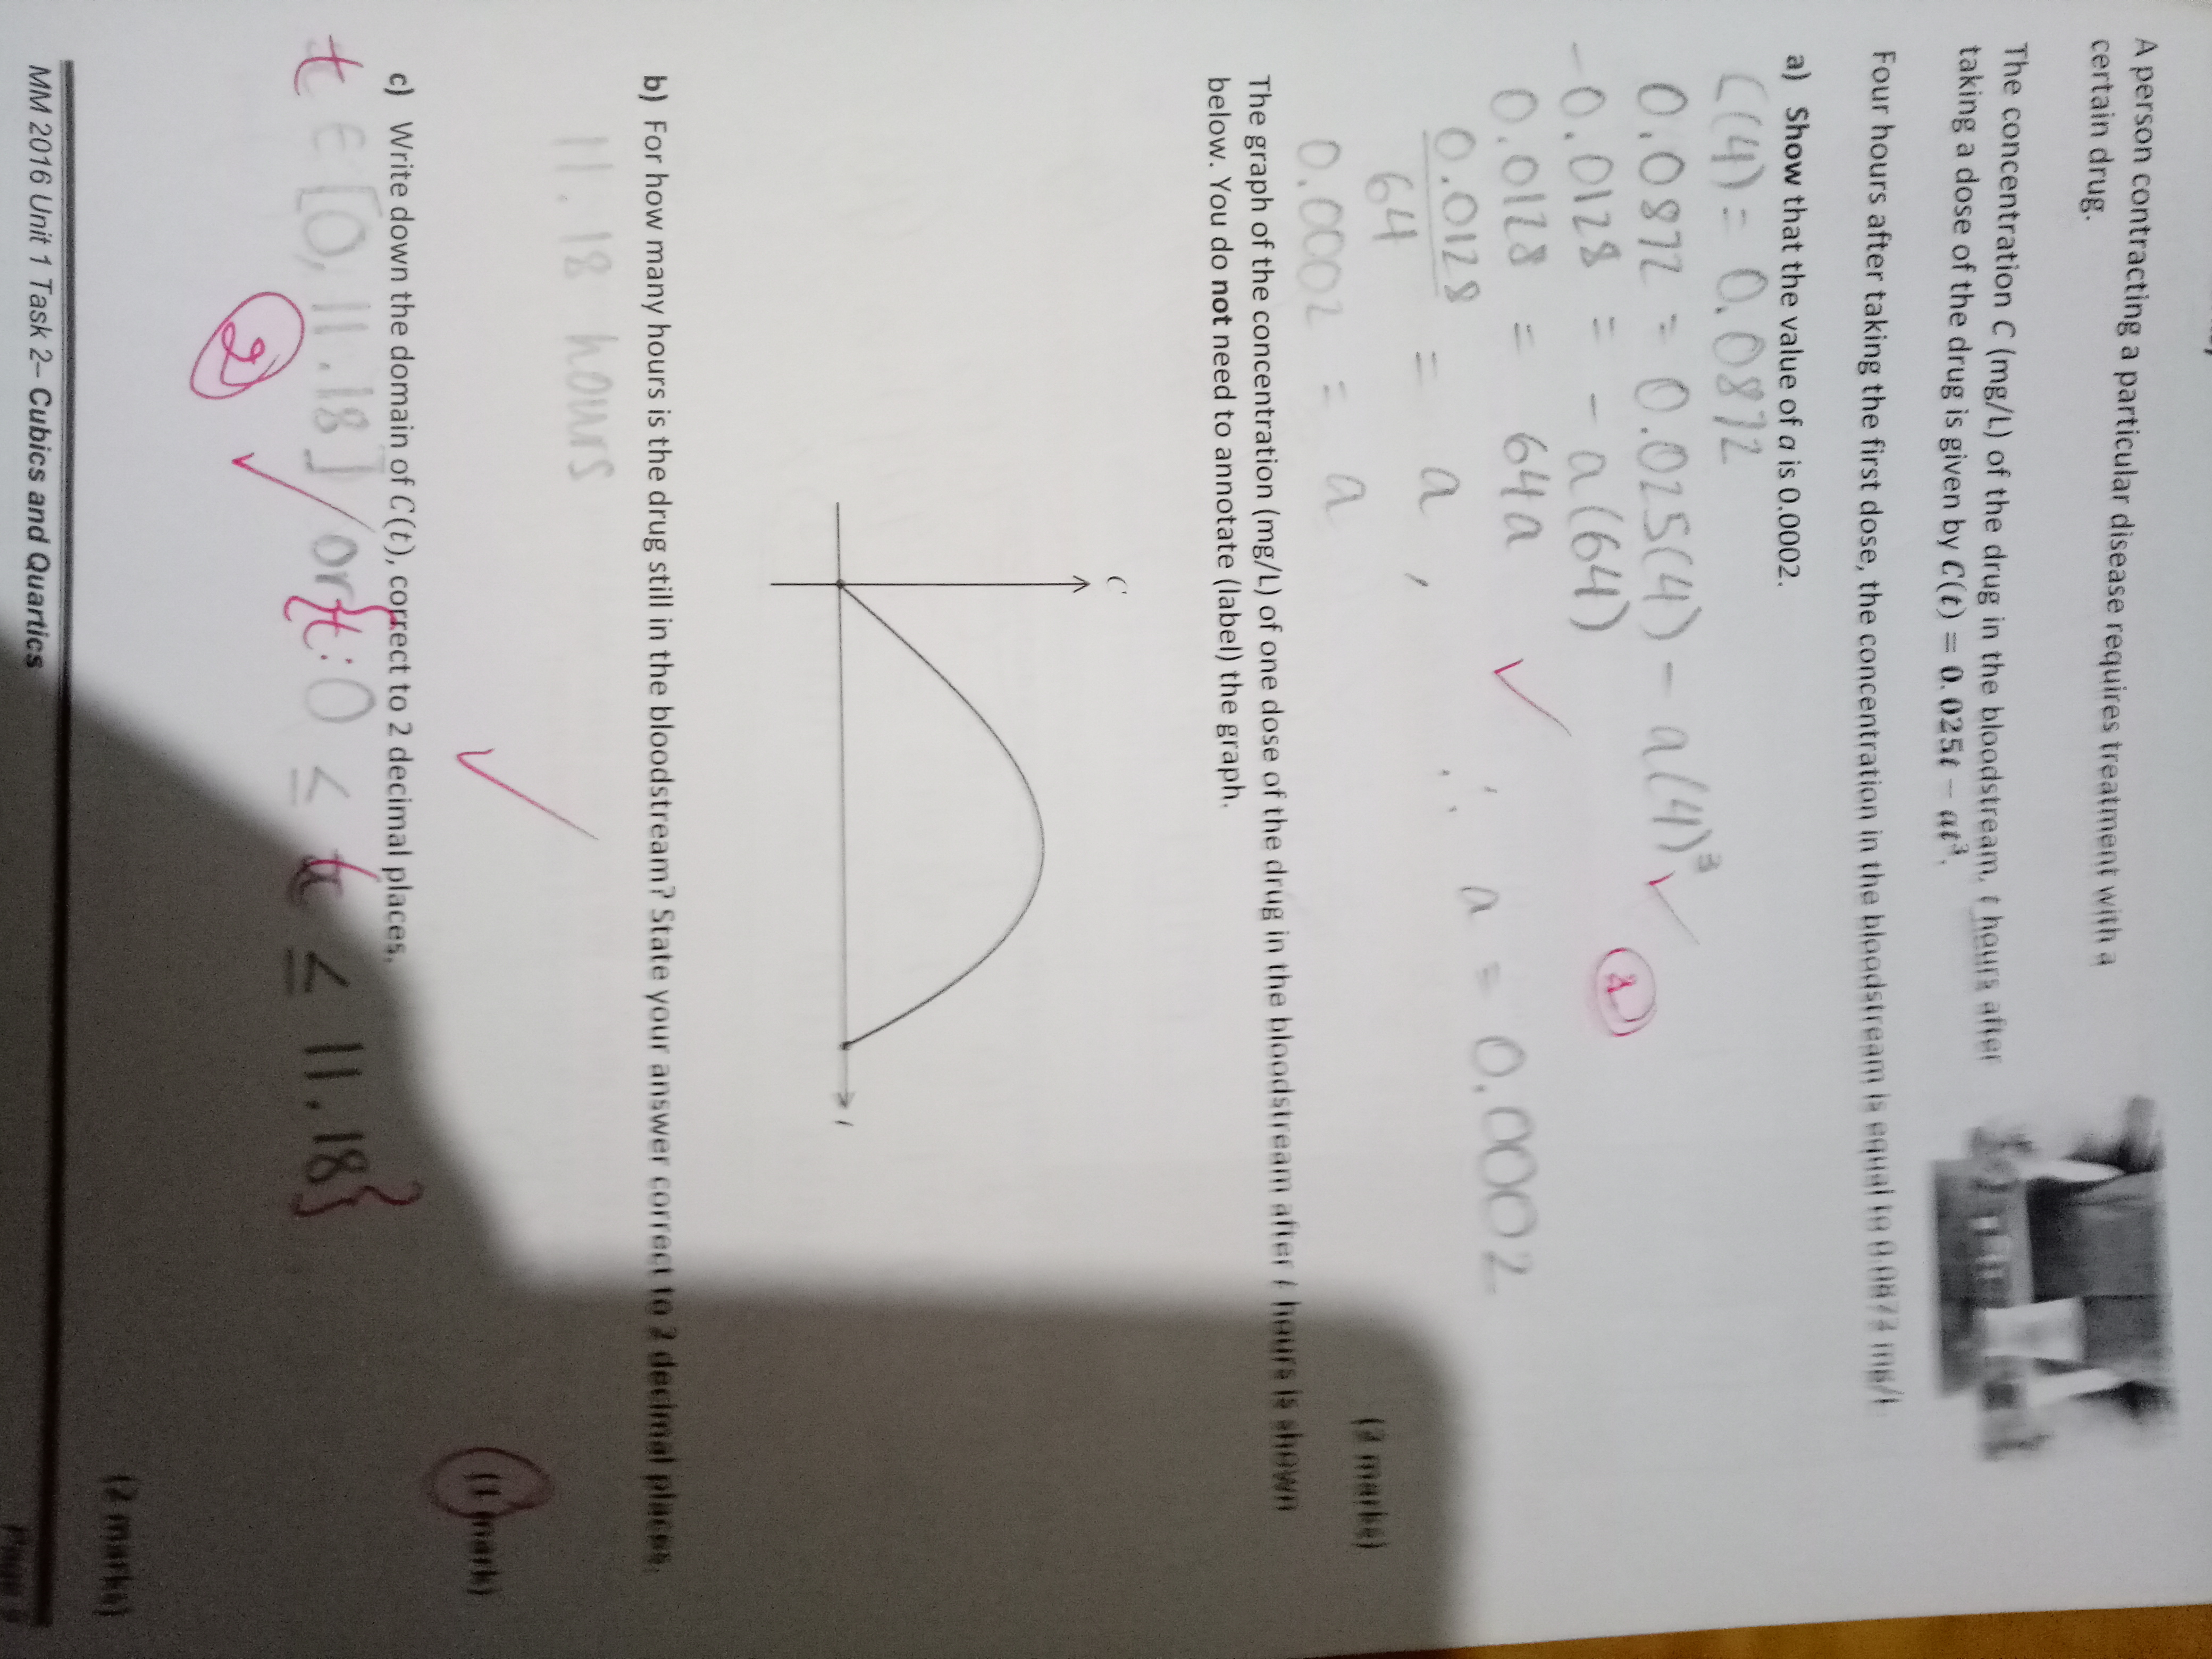 A person contracting a particular disease requires treatment with a
certain drug.
The concentration C (mg/L) of the drug in the bloodstream, t hours after
taking a dose of the drug is given by C(t) = 0.025t − at³.
Four hours after taking the first dose, the concentration in the bloodstream is equal to 0.0872 mg/L
a) Show that the value of a is 0.0002.
C(4) = 0.0872
0.0872 = 0.025(4) − a(4)³
2
−0.0128 = −a(64)
0.0128 = 64a
∴ a = 0.0002
0.0128 = a,
64
0.0002 = a
(2 marks)
The graph of the concentration (mg/L) of one dose of the drug in the bloodstream after t hours is shown
below. You do not need to annotate (label) the graph.
C
t
b) For how many hours is the drug still in the bloodstream? State your answer correct to 2 decimal places.
11.18 hours
(1 mark)
c) Write down the domain of C(t), correct to 2 decimal places.
t ∈ [0, 11.18] or {t: 0 ≤ t ≤ 11.18}
2
(2 marks)
MM 2016 Unit 1 Task 2– Cubics and Quartics
Page